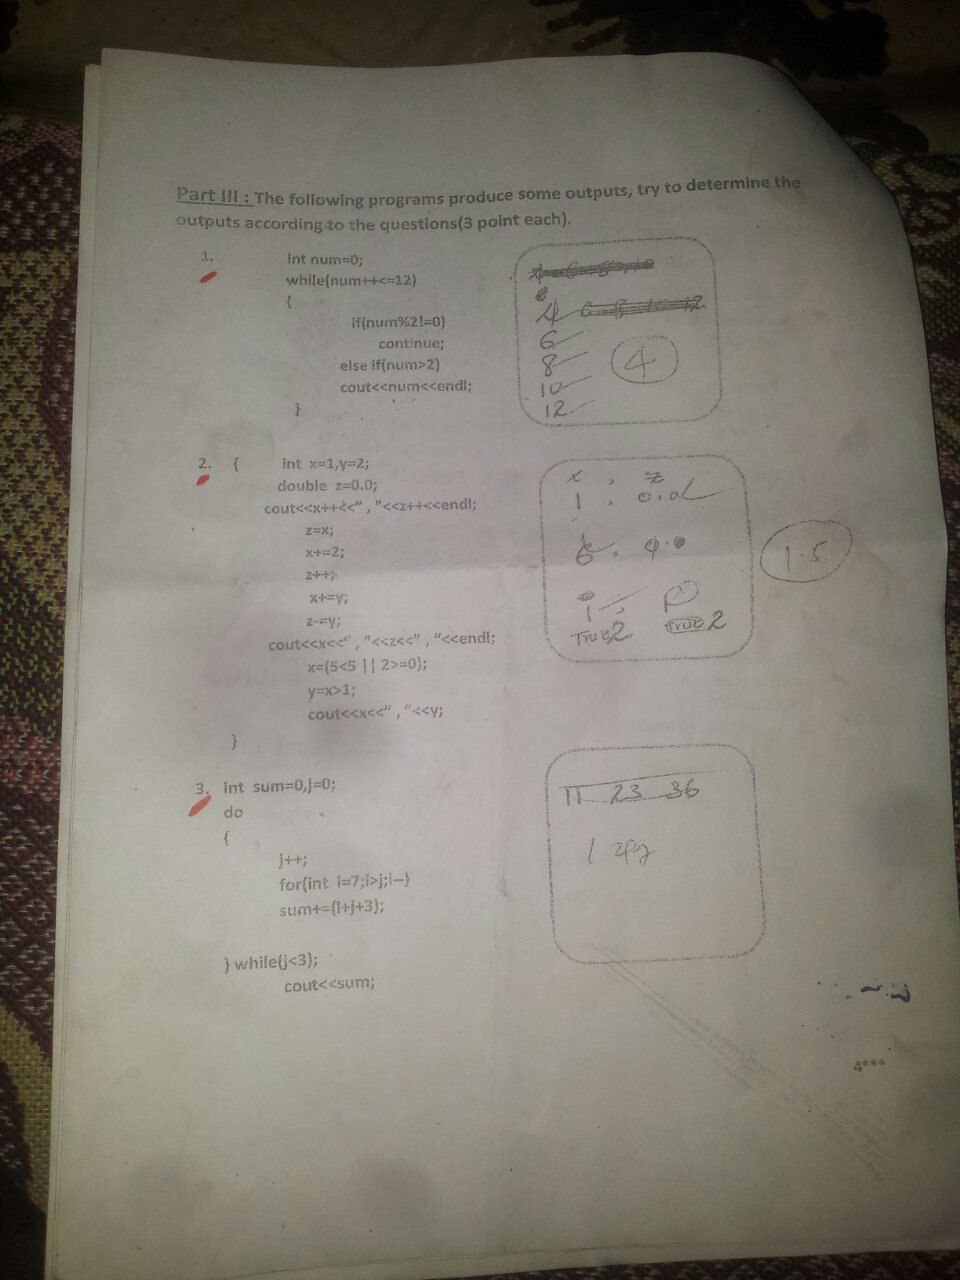 Part III : The following programs produce some outputs, try to determine the
outputs according to the questions(3 point each).
1. int num=0;
while(num++<=12)
{
if(num%2!=0)
continue;
else if(num>2)
cout<<num<<endl;
}
4
6
8
10
12
4
2. { int x=1,y=2;
double z=0.0;
cout<<x++<<" , "<<z++<<endl;
z=x;
x+=2;
z++;
x+=y;
z-=y;
cout<<x<<" , "<<z<<" , "<<endl;
x=(5<5 || 2>=0);
y=x>1;
cout<<x<<" , "<<y;
}
x , z
1 , 0.0
6 ,
1 ,
True 2 True 2
1.5
3. int sum=0,j=0;
do
{
j++;
for(int i=7;i>j;i--)
sum+=(i+j+3);
} while(j<3);
cout<<sum;
11 23 36
4***